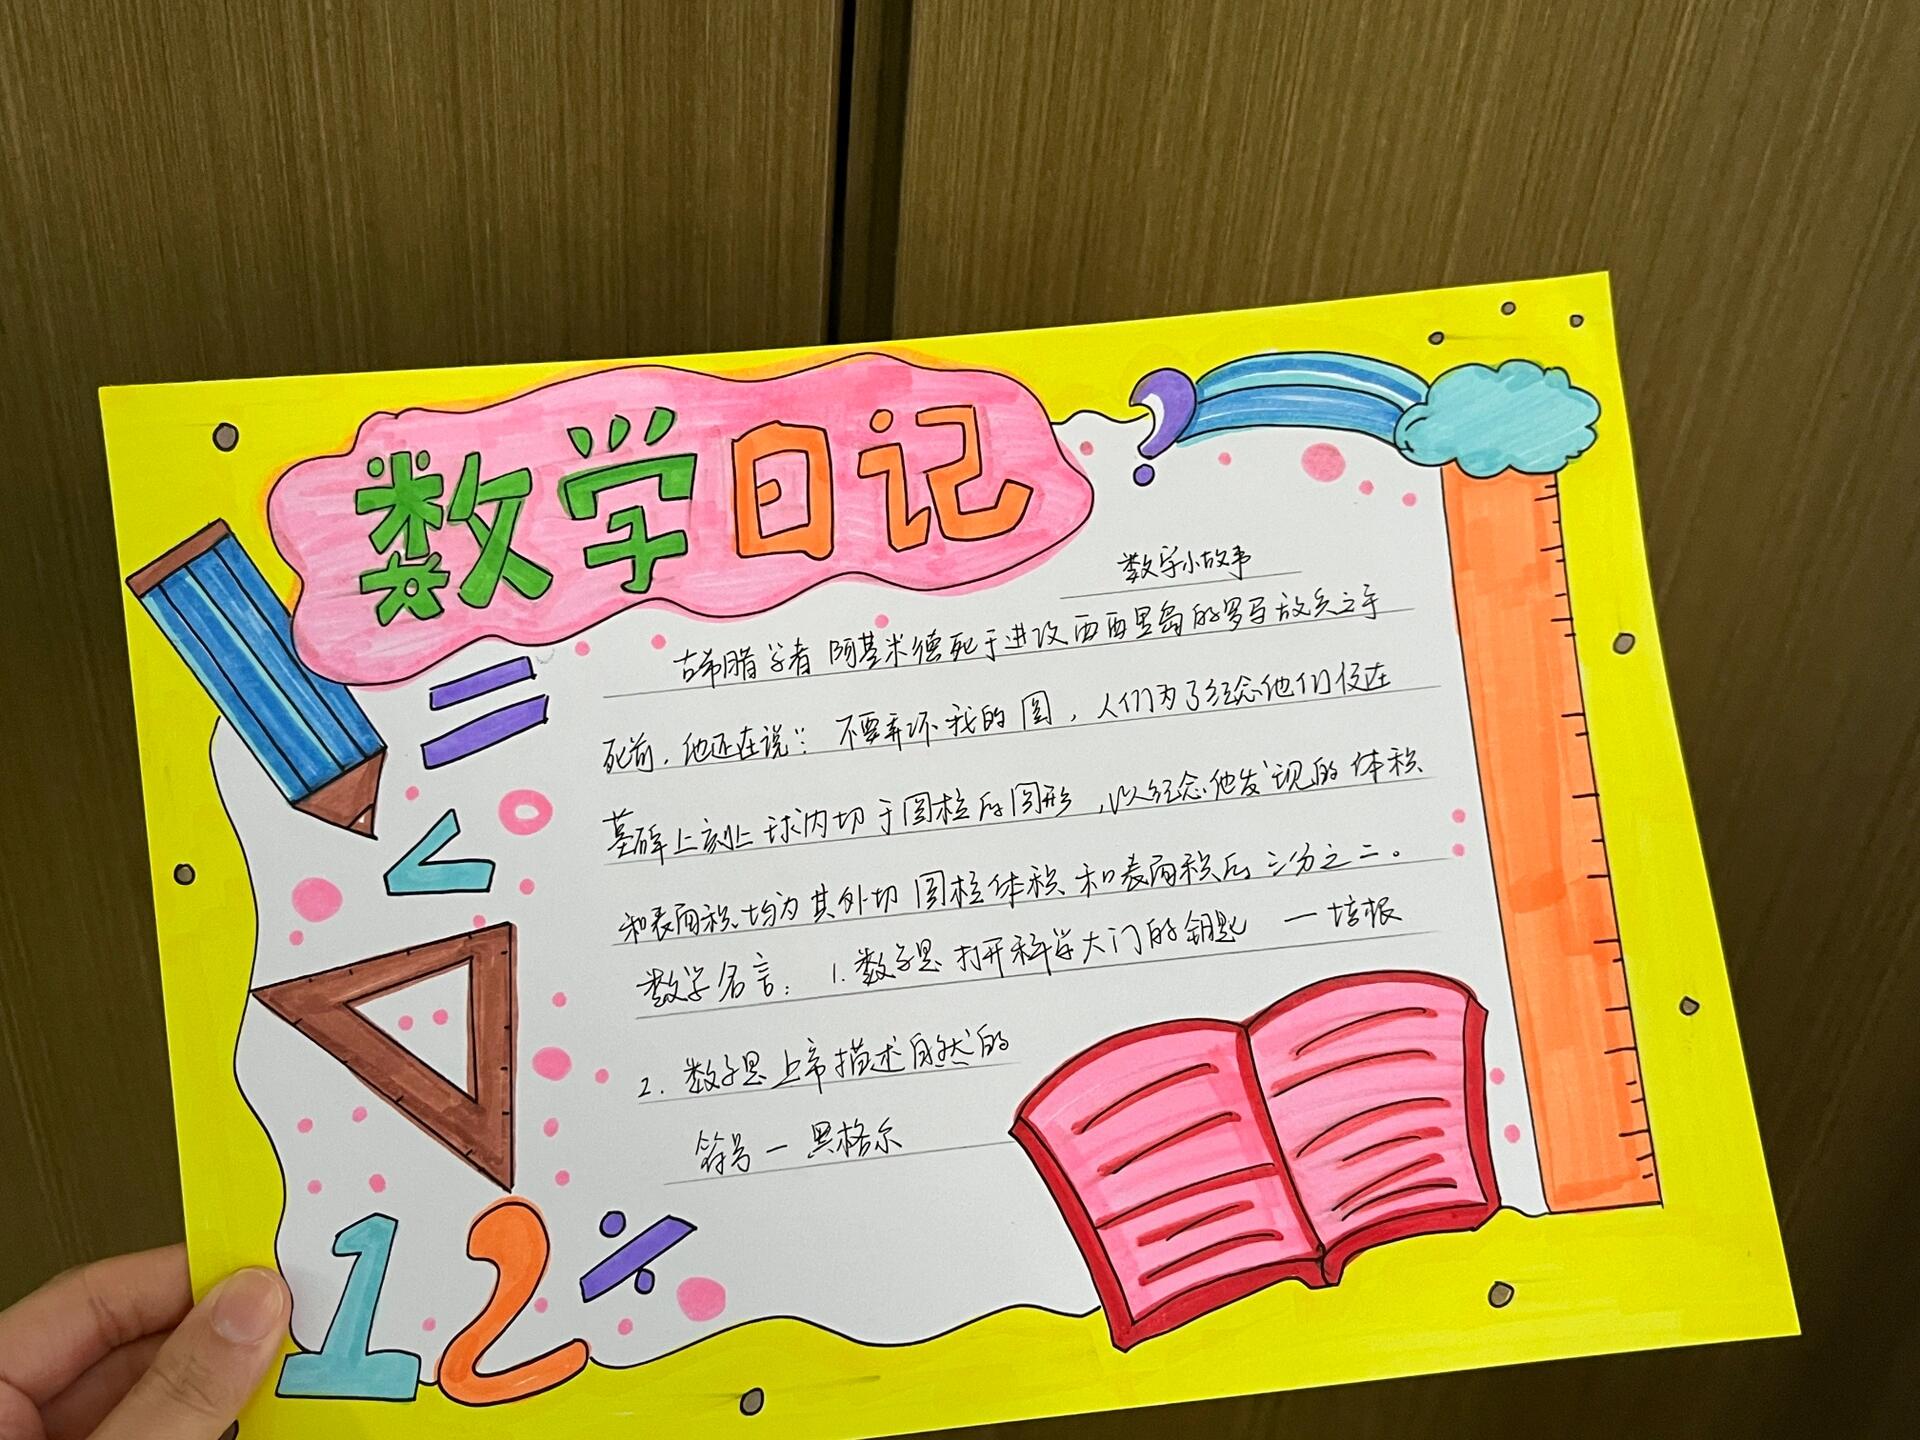 数学日记
数学小故事
古希腊学者阿基米德死于进攻西西里岛的罗马敌兵之手
死前,他还在说:"不要弄坏我的圆,人们为了纪念他们便在
墓碑上刻上球内切于圆柱的图形,以纪念他发现的体积
和表面积均为其外切圆柱体积和表面积的三分之二。
数学名言: 1.数学是打开科学大门的钥匙 一培根
2.数学是上帝描述自然的
符号一黑格尔
12